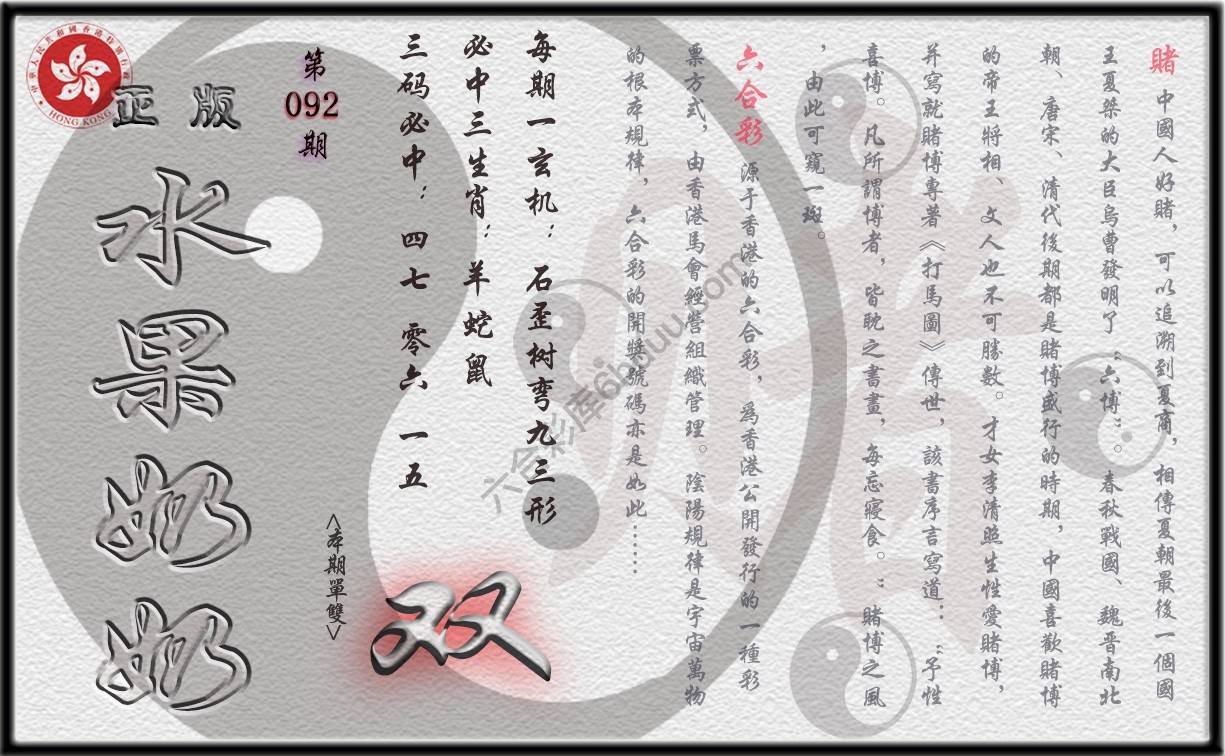 賭 中國人好賭，可以追溯到夏商，相傳夏朝最後一個國
王夏桀的大臣烏曹發明了“六博”。春秋戰國、魏晉南北
朝、唐宋、清代後期都是賭博盛行的時期，中國喜歡賭博
的帝王將相、文人也不可勝數。才女李清照生性愛賭博，
并寫就賭博專著《打馬圖》傳世，該書序言寫道：“予性
喜博。凡所謂博者，皆耽之書畫，每忘寢食。”賭博之風
，由此可窺一斑。
六合彩 源于香港的六合彩，為香港公開發行的一種彩
票方式，由香港馬會經營組織管理。陰陽規律是宇宙萬物
的根本規律，六合彩的開獎號碼亦是如此……
每期一玄机：石歪树弯九三形
必中三生肖：羊蛇鼠
三码必中：四七 零六 一五
双
<本期單雙>
第
092
期
正版
水果奶奶
中華人民共和國香港特別行政區
HONG KONG
六合彩库6hduu.com